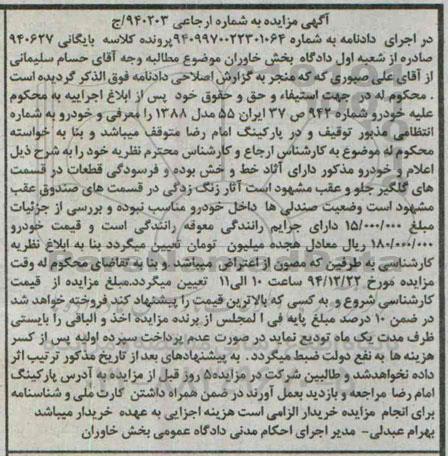 آگهی مزایده به شماره ارجاعی ۹۴۰۲۰۳/ج
در اجرای دادنامه به شماره ۹۴۰۹۹۷۰۰۲۲۳۰۱۰۶۴پرونده کلاسه بایگانی ۹۴۰۶۲۷
صادره از شعبه اول دادگاه بخش خاوران موضوع مطالبه وجه آقای حسام سلیمانی
از آقای علی صبوری که که منجر به گزارش اصلاحی دادنامه فوق الذکر گردیده است
. محکوم له در جهت استیفاء و حق و حقوق خود پس از ابلاغ اجراییه به محکوم
علیه خودرو شماره ۹۴۲ ص ۳۷ ایران ۵۵ مدل ۱۳۸۸ را معرفی و خودرو به شماره
انتظامی مذبور توقیف و در پارکینگ امام رضا متوقف میباشد و بنا به خواسته
محکوم له موضوع به کارشناس ارجاع و کارشناس محترم نظریه خود را به شرح ذیل
اعلام و خودرو مذکور دارای آثار خط و خش بوده و فرسودگی قطعات در قسمت
های گلگیر جلو و عقب مشهود است آثار زنگ زدگی در قسمت های صندوق عقب
مشهود است وضعیت صندلی ها داخل خودرو مناسب نبوده و بررسی از جزئیات
مبلغ ۱۵/۰۰۰/۰۰۰ دارای جرایم رانندگی معوقه رانندگی است و قیمت خودرو
۱۸۰/۰۰۰/۰۰۰ ریال معادل هجده میلیون تومان تعیین میگردد بنا به ابلاغ نظریه
کارشناسی به طرفین که مصون از اعتراض میباشد و بنا به تقاضای محکوم له وقت
مزایده مورخ ۹۴/۱۲/۲۲ ساعت ۱۰ الی۱۱ تعیین میگردد.مبلغ مزایده از قیمت
کارشناسی شروع و به کسی که بالاترین قیمت را پیشنهاد کند فروخته خواهد شد
در ضمن ۱۰ درصد مبلغ پایه فی المجلس از برنده مزایده اخذ و الباقی را بایستی
ظرف مدت یک ماه تودیع نماید در صورت عدم پرداخت سپرده اولیه پس از کسر
هزینه ها به نفع دولت ضبط میگردد . به پیشنهادهای بعد از تاریخ مذکور ترتیب اثر
داده نخواهدشد و طالبین شرکت در مزایده۵ روز قبل از مزایده به آدرس پارکینگ
امام رضا مراجعه و بازدید بعمل آورند در ضمن همراه داشتن کارت ملی و شناسنامه
برای انجام مزایده خریدار الزامی است هزینه اجرایی به عهده خریدار میباشد
بهرام عبدلی- مدیر اجرای احکام مدنی دادگاه عمومی بخش خاوران